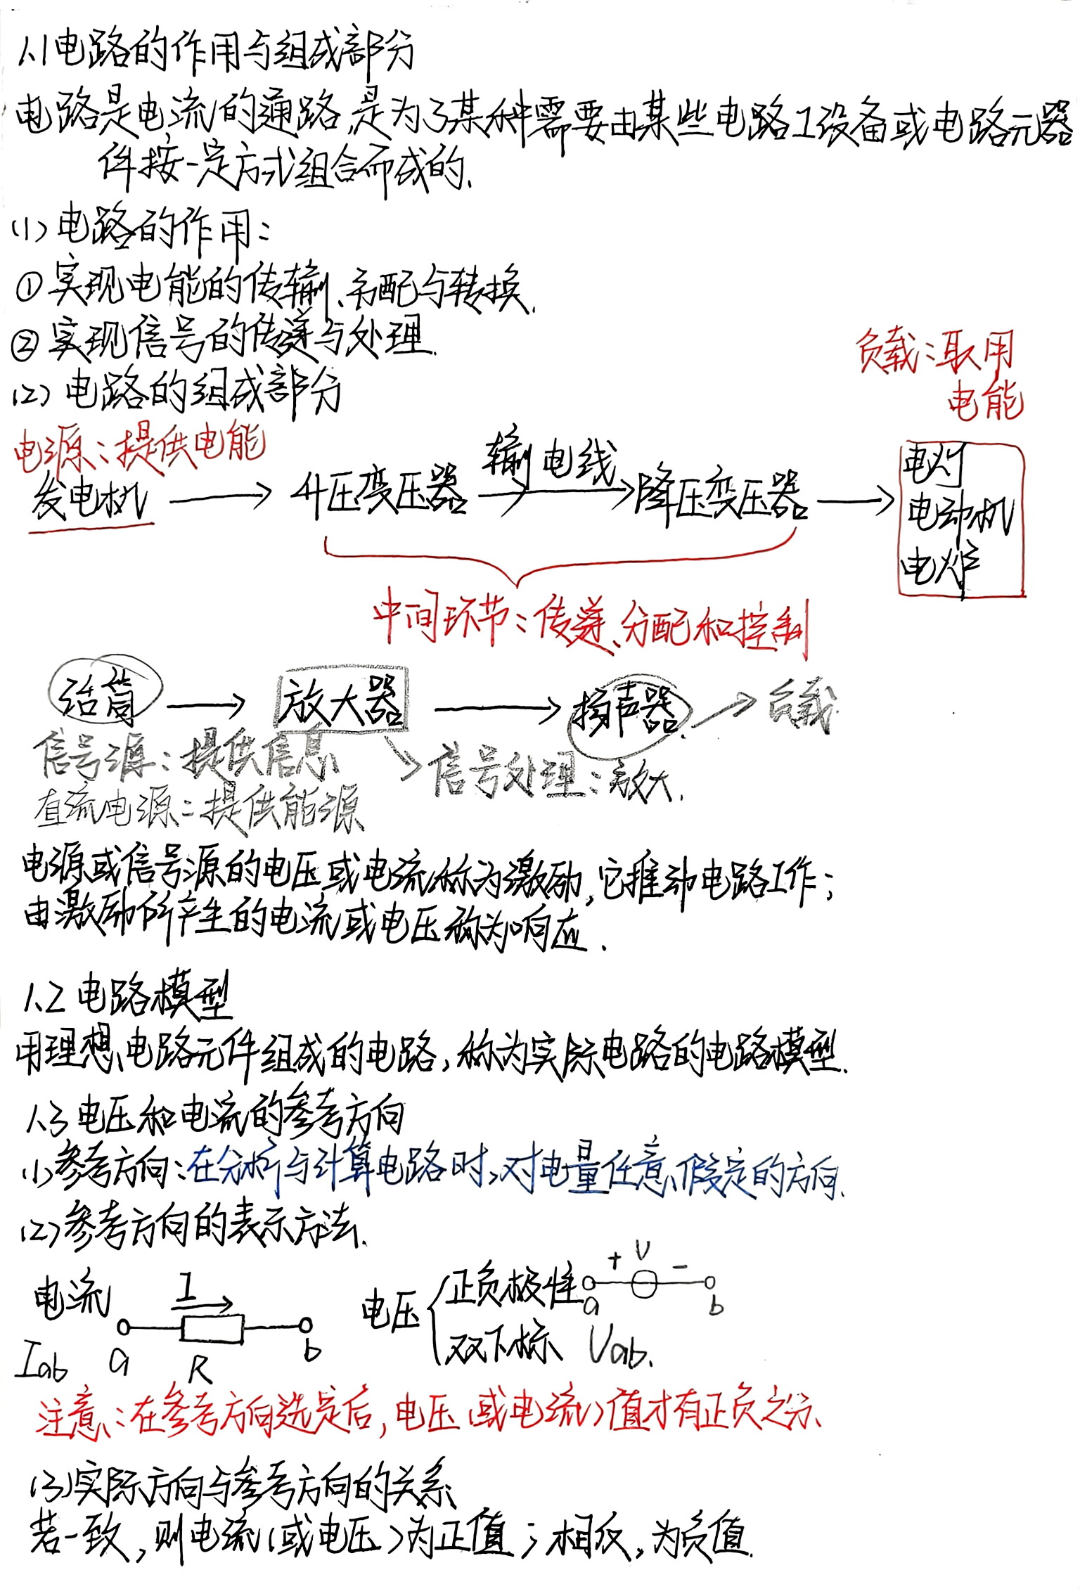 1.1电路的作用与组成部分
电路是电流的通路,是为了某种需要由某些电路工设备或电路元器
件按一定方式组合而成的.
(1)电路的作用:
①实现电能的传输、分配与转换.
②实现信号的传递与处理.
(2)电路的组成部分
负载:取用
电能
电源:提供电能
发电机 → 升压变压器 输电线 → 降压变压器 → 电灯
电动机
电炉
中间环节:传递、分配和控制
话筒 → 放大器 → 扬声器 → 负载
信号源:提供信息
信号处理:放大.
直流电源:提供能源
电源或信号源的电压或电流称为激励,它推动电路工作;
由激励所产生的电流或电压称为响应.
1.2电路模型
用理想电路元件组成的电路,称为实际电路的电路模型.
1.3电压和电流的参考方向
(1)参考方向:在分析与计算电路时,对电量任意假定的方向.
(2)参考方向的表示方法.
电流 I
Iab a R b
电压 { 正负极性 a + V - b
双下标 Vab.
注意:在参考方向选定后,电压(或电流)值才有正负之分.
(3)实际方向与参考方向的关系
若一致,则电流(或电压)为正值;相反,为负值.